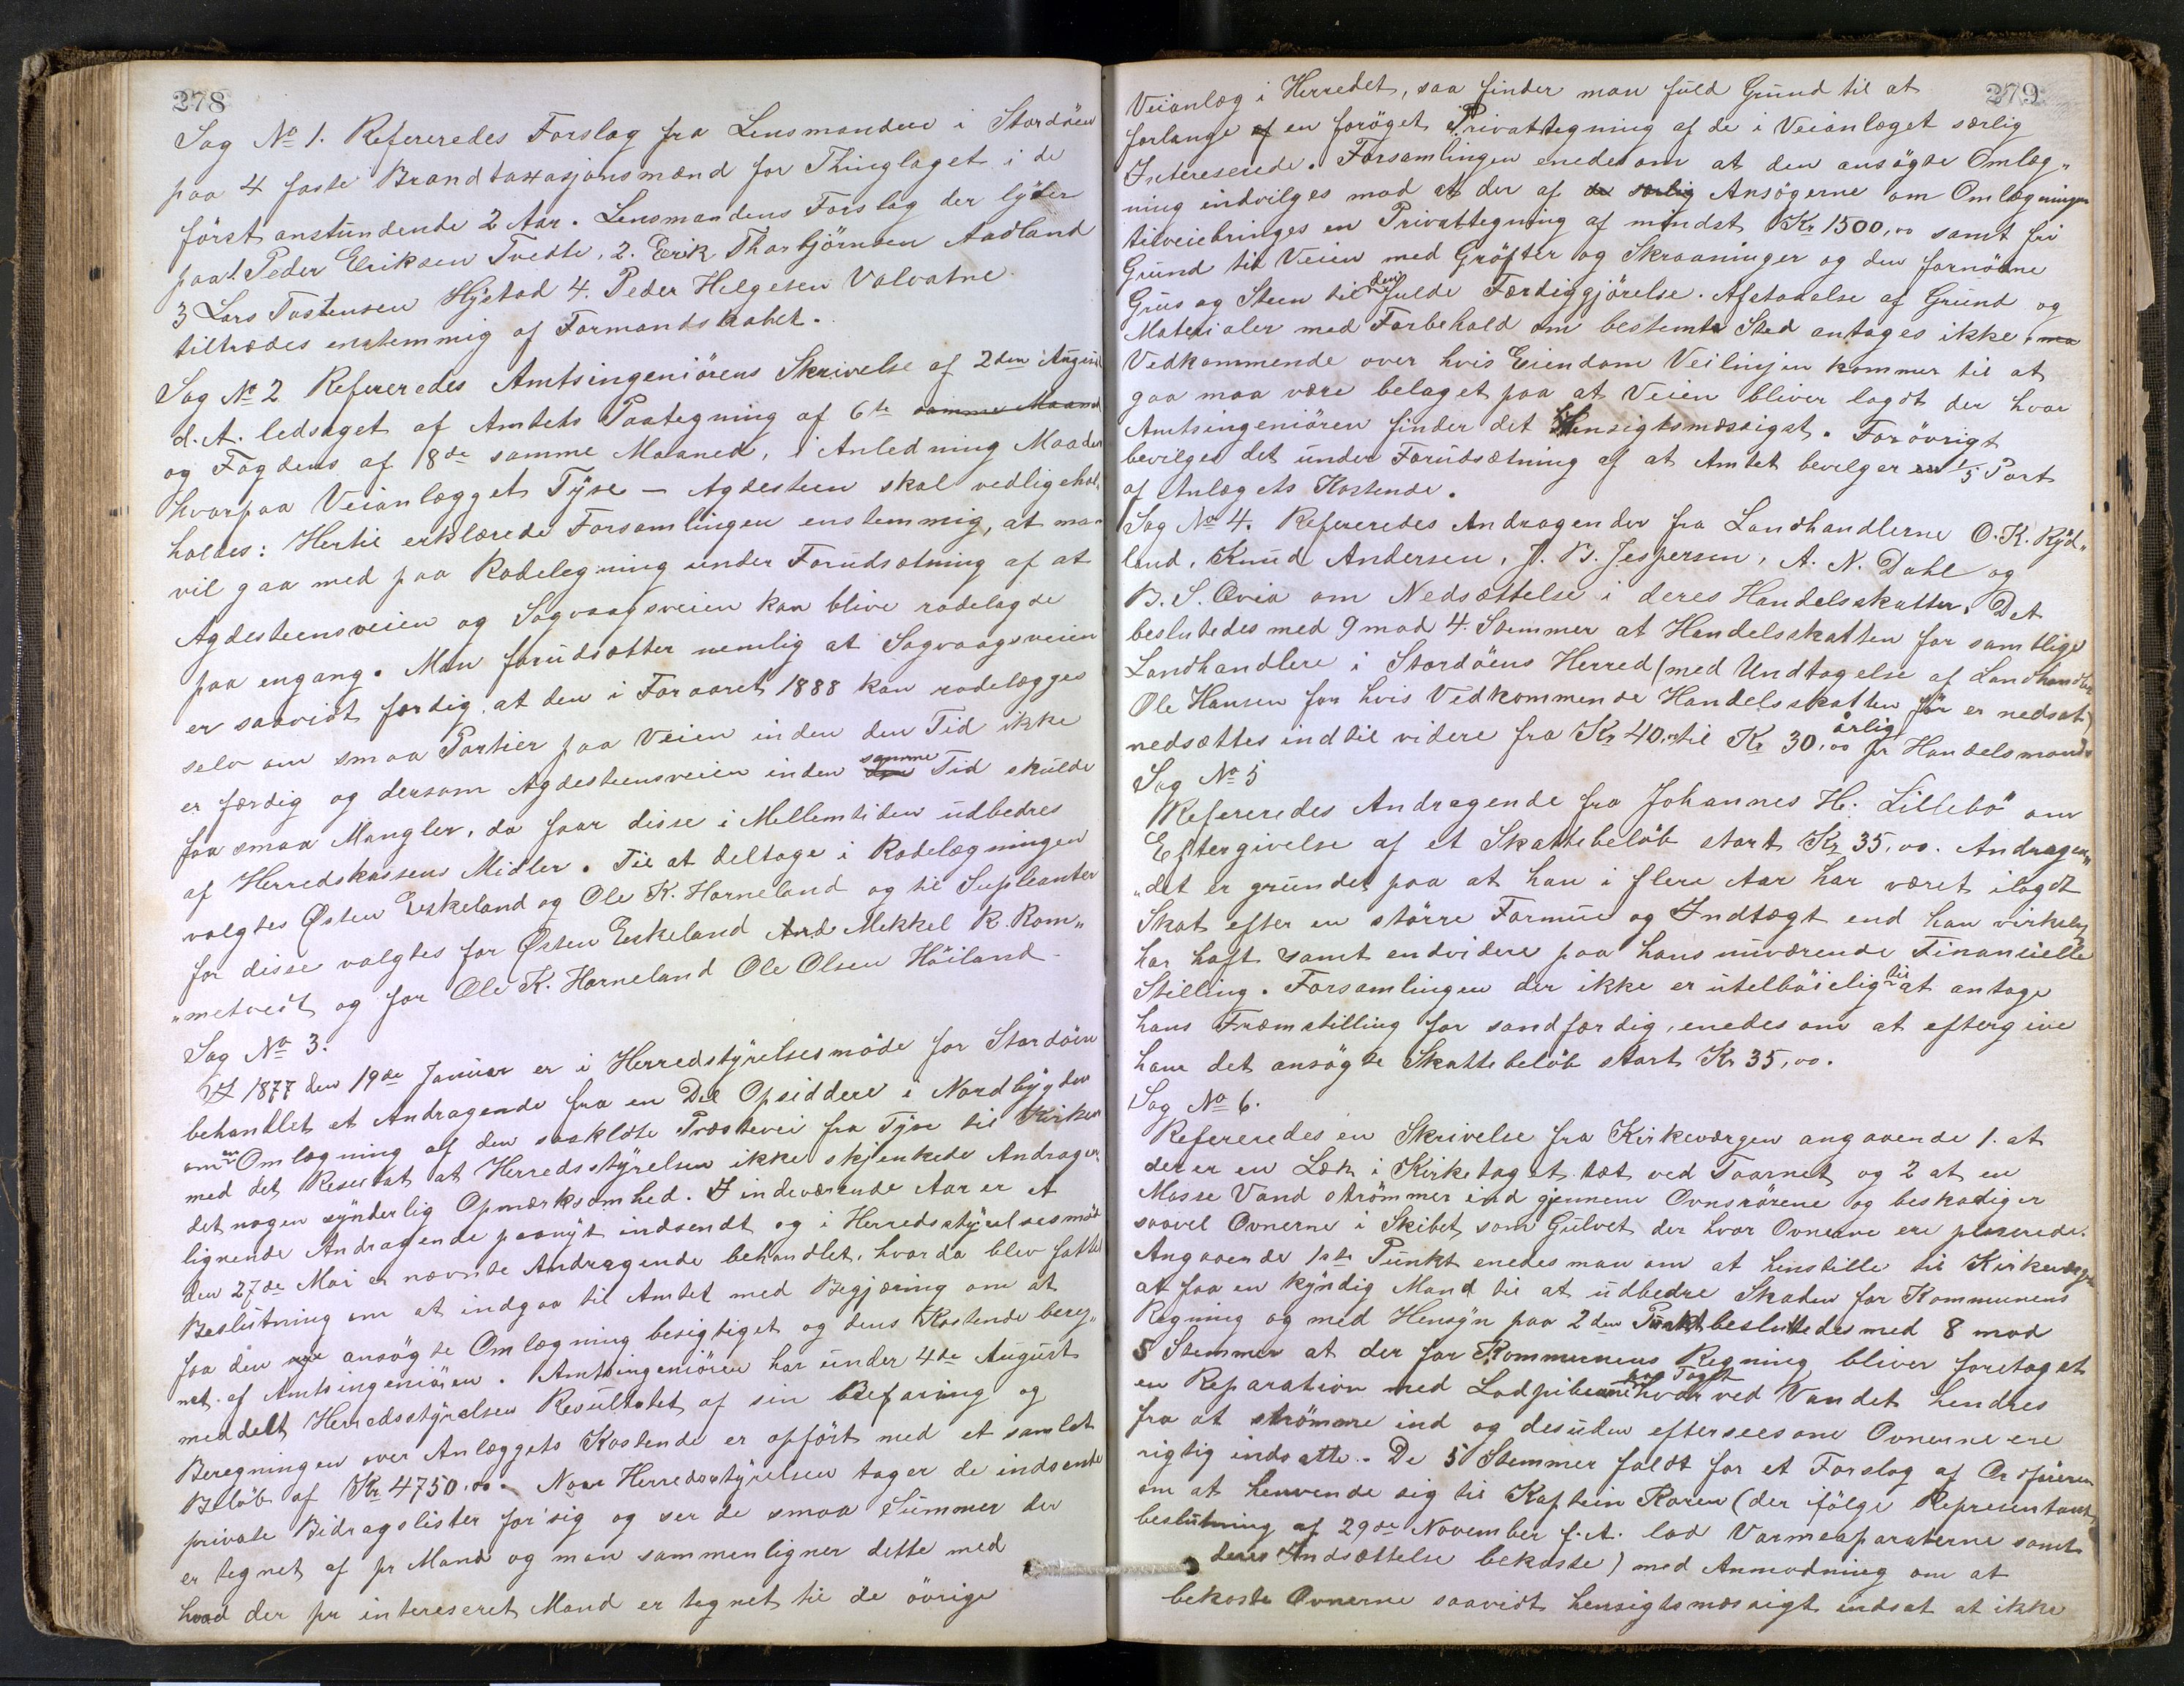 278
Sag No 1. Refereredes Forslag fra Lensmanden i Stordöen
paa 4 faste Brandtaxasjonsmænd for Thinglaget i de
först anstundende 2 Aar. Lensmandens Forslag der lyder
paa 1. Peder Eriksen Tvedte, 2. Erik Thorbjörnsen Aadland
3 Lars Tostensen Hystad 4. Peder Helgesen Valvatne
tiltrædes enstemmig af Formandskabet.
Sag No 2 Refereredes Amtsingeniörens Skrivelse af 2den August
d. A. ledsaget af Amtets Paategning af 6te samme Maaned
og Fogdens af 18de samme Maaned, i Anledning Maaden
hvorpaa Veianlægget Tyse – Agdesteen skal vedligehol-
holdes: Hertil erklærede Forsamlingen enstemmig, at man
vil gaa med paa Rodelegning under Forudsætning af at
Agdesteensveien og Sagvaagsveien kan blive rodelagde
paa engang. Man forudsætter nemlig at Sagvaagsveien
er saavidt færdig, at den i Foraaret 1888 kan rodelægges
selv om smaa Partier paa Veien inden den Tid ikke
er færdig og dersom Agdesteensveien inden den samme Tid skulde
faa smaa Mangler, da faar disse i Mellemtiden udbedres
af Herredskassens Midler. Til at deltage i Rodelægningen
valgtes Østen Eskeland og Ole K. Horneland og til Supleanter
for disse valgtes for Østen Eskeland And Mikkel R. Rom„
„metvedt og for Ole K. Horneland Ole Olsen Höiland.
Sag No 3.
I 1877 den 19de Januar er i Herredstyrelsesmöde for Stordöen
behandlet et Andragende fra en Del Opsiddere i Nordbygden
om en Omlægning af den saakldte Præstevei fra Tyse til Kirken
med det Resultat at Herredsstyrelsen ikke skjenkede Andragen„
det nogen synderlig Opmærksomhed. I indeværende Aar er et
lignende Andragende paanyt indsendt og i Herredsstyrelsesmöd
den 27de Mai er nævnte Andragende behandlet, hvor da blev fattet
Beslutning om at indgaa til Amtet med Begjæring om at
faa den nye ansögte Omlægning besigtiget og dens Kostende bereg„
net af Amtsingeniören. Amtsingeniören har under 4de August
meddelt Herredsstyrelsen Resultatet af sin Befaring og
Beregningen over Anlæggets Kostende er opfört med et samlet
Belöb af Kr 4750,00. Naar Herredsstyrelsen tager de indsendte
private Bidragslister for sig og ser de smaa Summer der
er tegnet af pr Mand og man sammenligner dette med
hvad der pr intereseret Mand er tegnet til de övrige
279
Veianlæg i Herredet, saa finder man fuld Grund til at
forlange af en foröget Privattegning af de i Veianlæget særlig
Intereserede. Forsamlingen enedes om at den ansögte Omlæg„
ning indvilges mod at der af de særlig Ansögerne om Omlægningen
tilveiebringes en Privattegning af mindst Kr 1500,00 samt fri
Grund til Veien med Gröfter og Skraaninger og den fornödne
Grus og Steen til den fulde Færdiggjörelse. Afstaaelse af Grund og
Materialer med Forbehold om bestemte Sted antages ikke, men
Vedkommende over hvis Eiendom Veilinjen kommer til at
gaa maa være belaget paa at Veien bliver lagdt der hvor
Amtsingeniören finder det Hensigtsmæssigst. Forövrigt
bevilges det under Forudsætning af at Amtet bevilger en 1/5 Part
af Anlægets Kostende.
Sag No 4. Refereredes Andragender fra Landhandlerne O. K. Ryd„
land, Knud Andersen, J. B. Jespersen, A. N. Dahl og
B. S. Qvia om Nedsættelse i deres Handelsskatter. Det
beslutedes med 9 mod 4 Stemmer at Handelsskatten for samtlige
Landhandlere i Stordöens Herred (med Undtagelse af Landhandler
Ole Hansen for hvis Vedkommende Handelsskatten för er nedsat)
nedsættes indtil videre fra Kr 40,00 til Kr 30,00 årlig pr Handelsmand.
Sag No 5
Refereredes Andragende fra Johannes H. Lillebö om
Eftergivelse af et Skattebelöb stort Kr 35,00. Andragen„
„det er grundet paa at han i flere Aar har været ilagdt
Skat efter en större Formue og Indtægt end han virkelig
har haft samt endvidere paa hans nuværende Financielle
Stilling. Forsamlingen der ikke er utelböielig til at antage
hans Fremstilling for sandfærdig, enedes om at eftergive
ham det ansögte Skattebelöb stort Kr 35,00.
Sag No 6.
Refereredes en Skrivelse fra Kirkeværgen angaaende 1. at
der er en Læk i Kirketaget tæt ved Taarnet og 2 at en
Masse Vand strömmer ind gjennem Ovnsrörene og beskadiger
saavel Ovnerne i Skibet som Gulvet der hvor Ovnerne ere plaserede.
Angaaende 1ste Punkt enedes man om at henstille til Kirkeværgen
at faa en kyndig Mand til at udbedre Skaden for Kommunens
Regning og med Hensyn paa 2den Punkt beslutedes med 8 mod
5 Stemmer at der for Kommunens Regning bliver foretaget
en Reparation med Lodpiberne paa Taget hvorved Vandet hendres
fra at strömme ind og desuden eftersees om Ovnerne ere
rigtig indsatte. De 5 Stemmer faldt for et Forslag af Ordföreren
om at henvende sig til Kaptein Roren (der ifölge Representant
beslutning af 29de November f. A. lod Varmeaparaterne samt
deres Indsættelse bekoste) med Anmodning om at
bekoste Ovnerne saavidt hensigtsmæssigt indsat at ikke